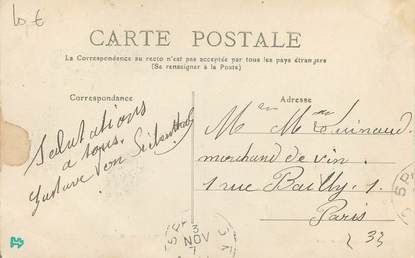 10 €
CARTE POSTALE
La Correspondance au recto n'est pas acceptée par tous les pays étrangers
(Se renseigner à la Poste)
Correspondance
Adresse
Salutations
a tous.
Gustave Von
M et Mme
marchand de vin.
1 rue Bailly. 1.
Paris
3
NOV